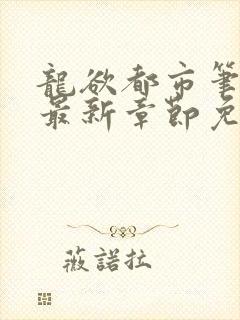 龍欲都市筆
最新章節免
薇諾拉